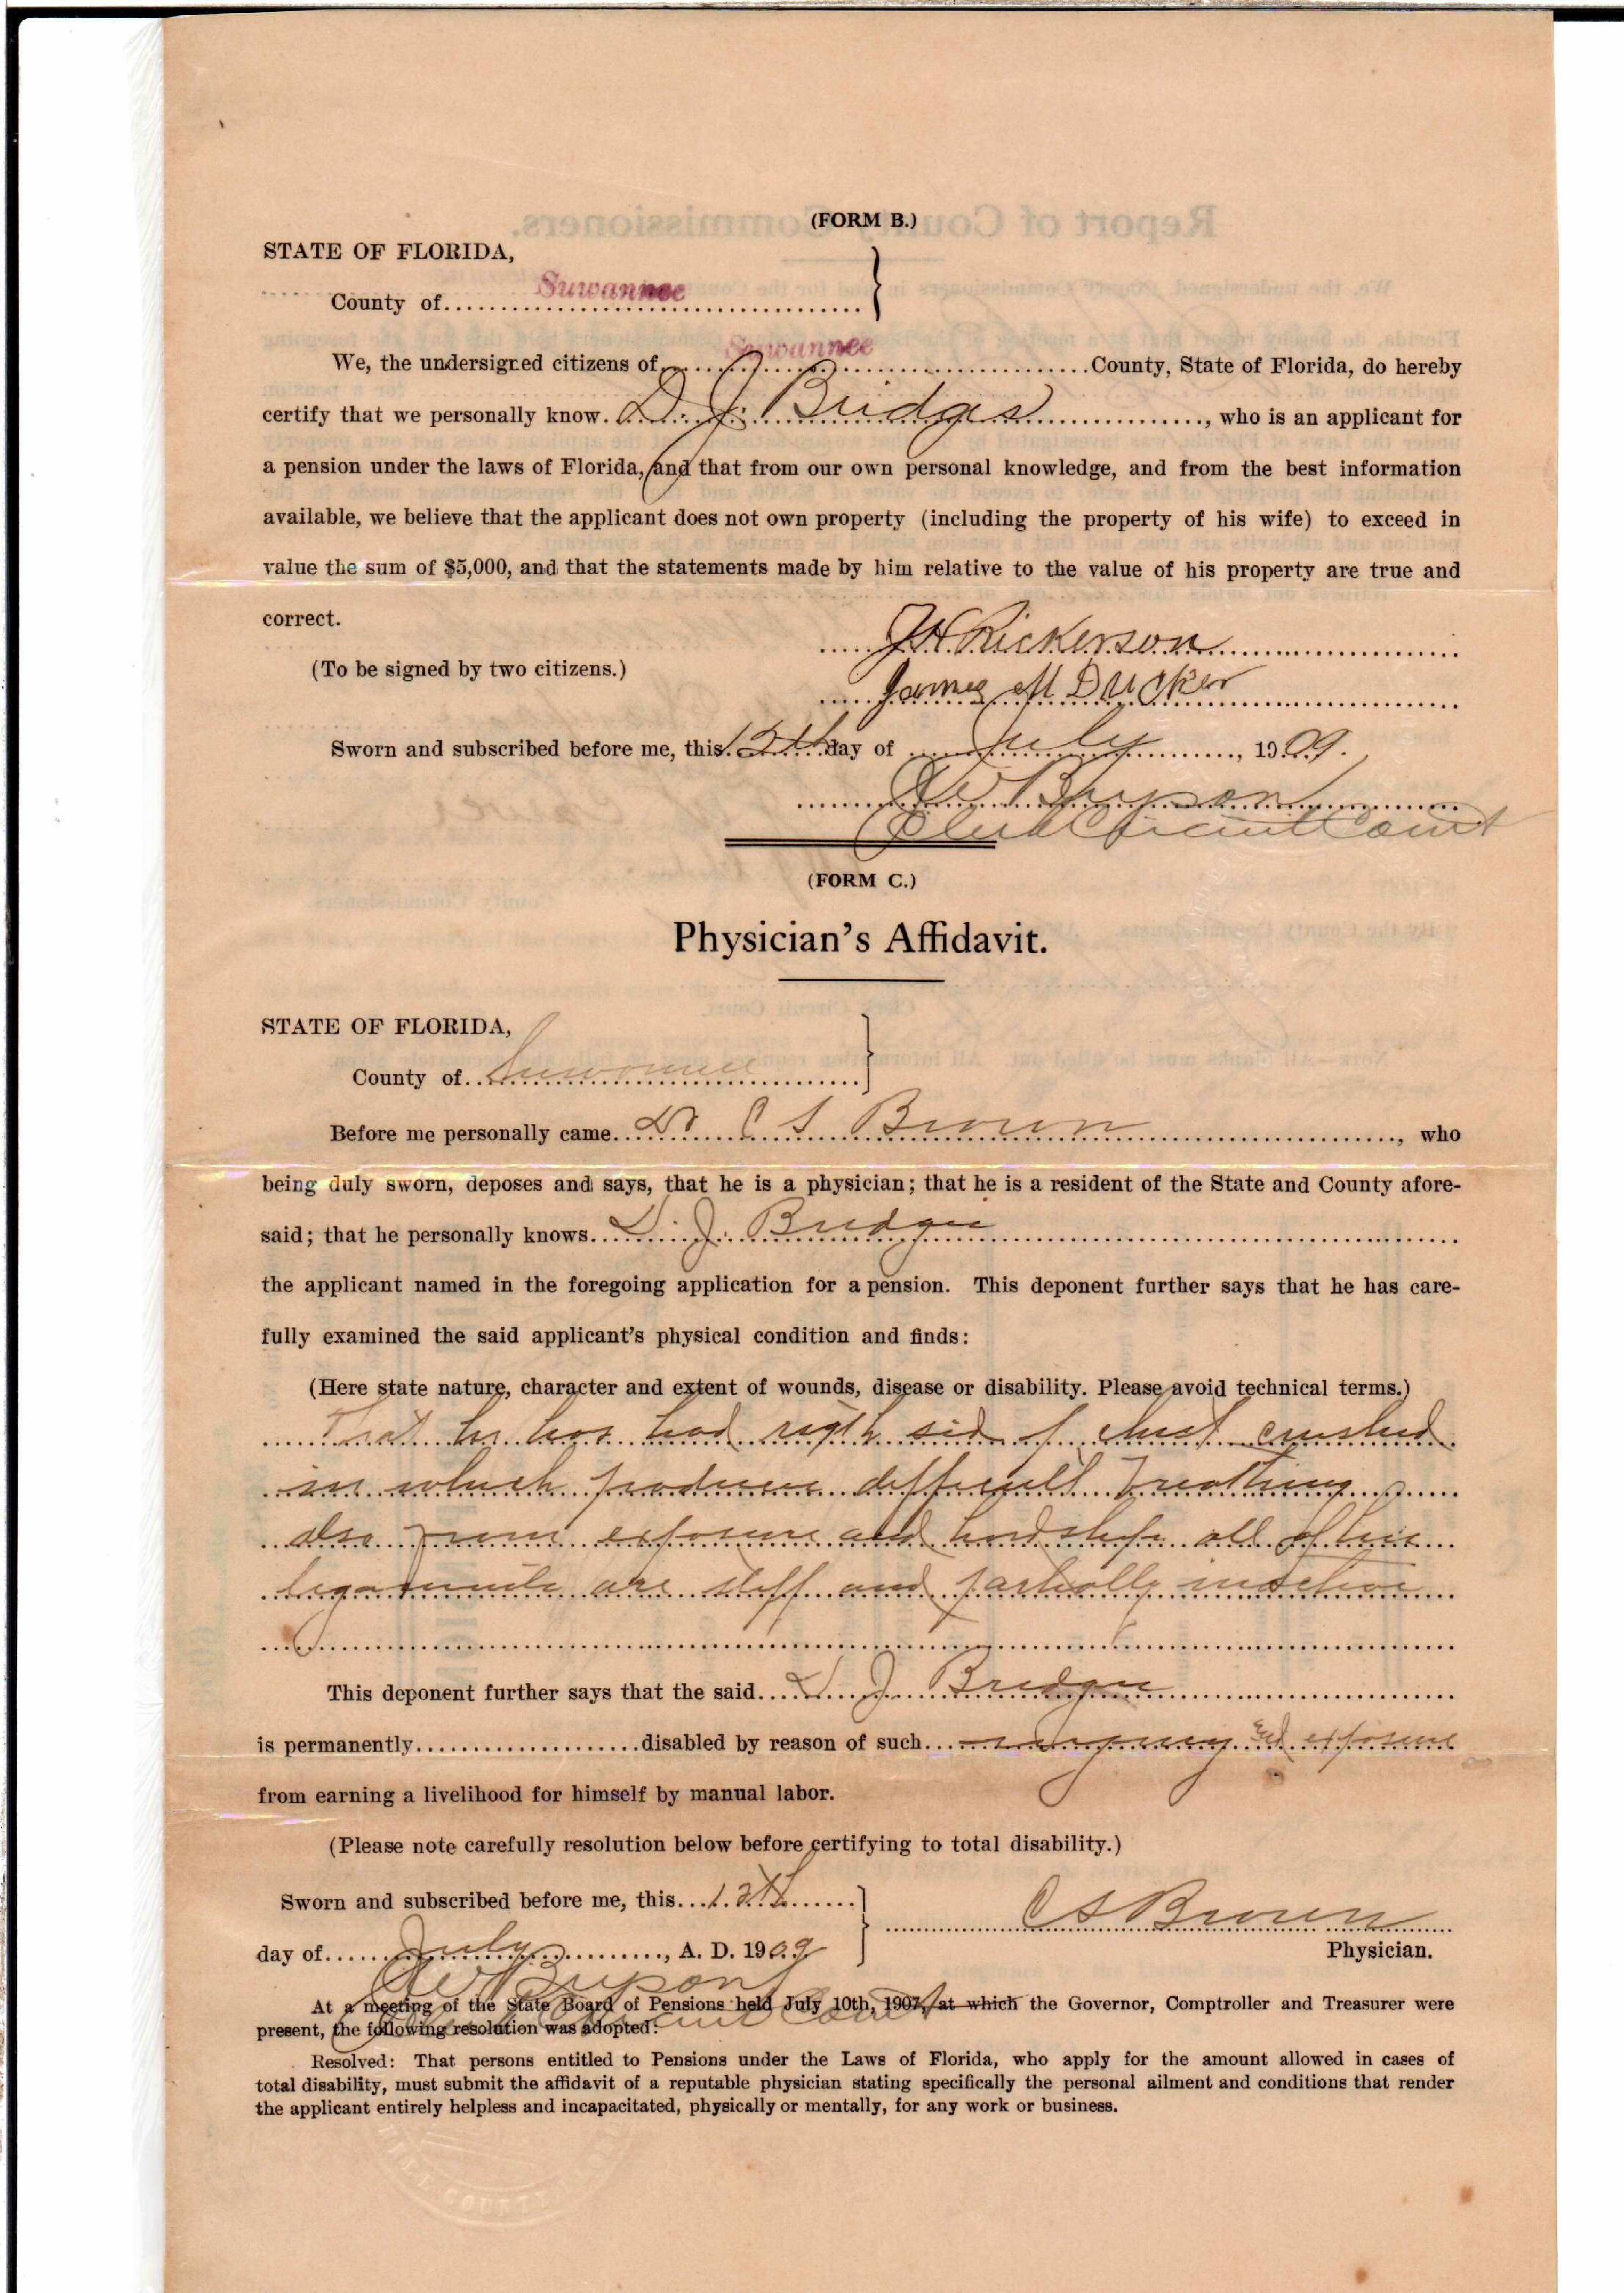 (FORM B.)
STATE OF FLORIDA,
County of Suwannee
We, the undersigned citizens of Suwannee County, State of Florida, do hereby
certify that we personally know D. J. Bridges, who is an applicant for
a pension under the laws of Florida, and that from our own personal knowledge, and from the best information
available, we believe that the applicant does not own property (including the property of his wife) to exceed in
value the sum of $5,000, and that the statements made by him relative to the value of his property are true and
correct.
J H Rickerson
(To be signed by two citizens.)
James M Ducker
Sworn and subscribed before me, this 12th day of July, 1909.
Bryson
Clerk Circuit Court
(FORM C.)
Physician's Affidavit.
STATE OF FLORIDA,
County of Suwannee
Before me personally came Dr C S Brown, who
being duly sworn, deposes and says, that he is a physician; that he is a resident of the State and County afore-
said; that he personally knows D. J. Bridges
the applicant named in the foregoing application for a pension. This deponent further says that he has care-
fully examined the said applicant's physical condition and finds:
(Here state nature, character and extent of wounds, disease or disability. Please avoid technical terms.)
That he has had rigth side of chest crushed
in which produces difficult breathing
also from exposure and hardship all of his
ligaments are stiff and partially inactive
This deponent further says that the said D. J. Bridges
is permanently disabled by reason of such injury and exposure
from earning a livelihood for himself by manual labor.
(Please note carefully resolution below before certifying to total disability.)
Sworn and subscribed before me, this 12th
C S Brown
day of July, A. D. 1909
Physician.
Bryson
Circuit Court
At a meeting of the State Board of Pensions held July 10th, 1907, at which the Governor, Comptroller and Treasurer were
present, the following resolution was adopted:
Resolved: That persons entitled to Pensions under the Laws of Florida, who apply for the amount allowed in cases of
total disability, must submit the affidavit of a reputable physician stating specifically the personal ailment and conditions that render
the applicant entirely helpless and incapacitated, physically or mentally, for any work or business.